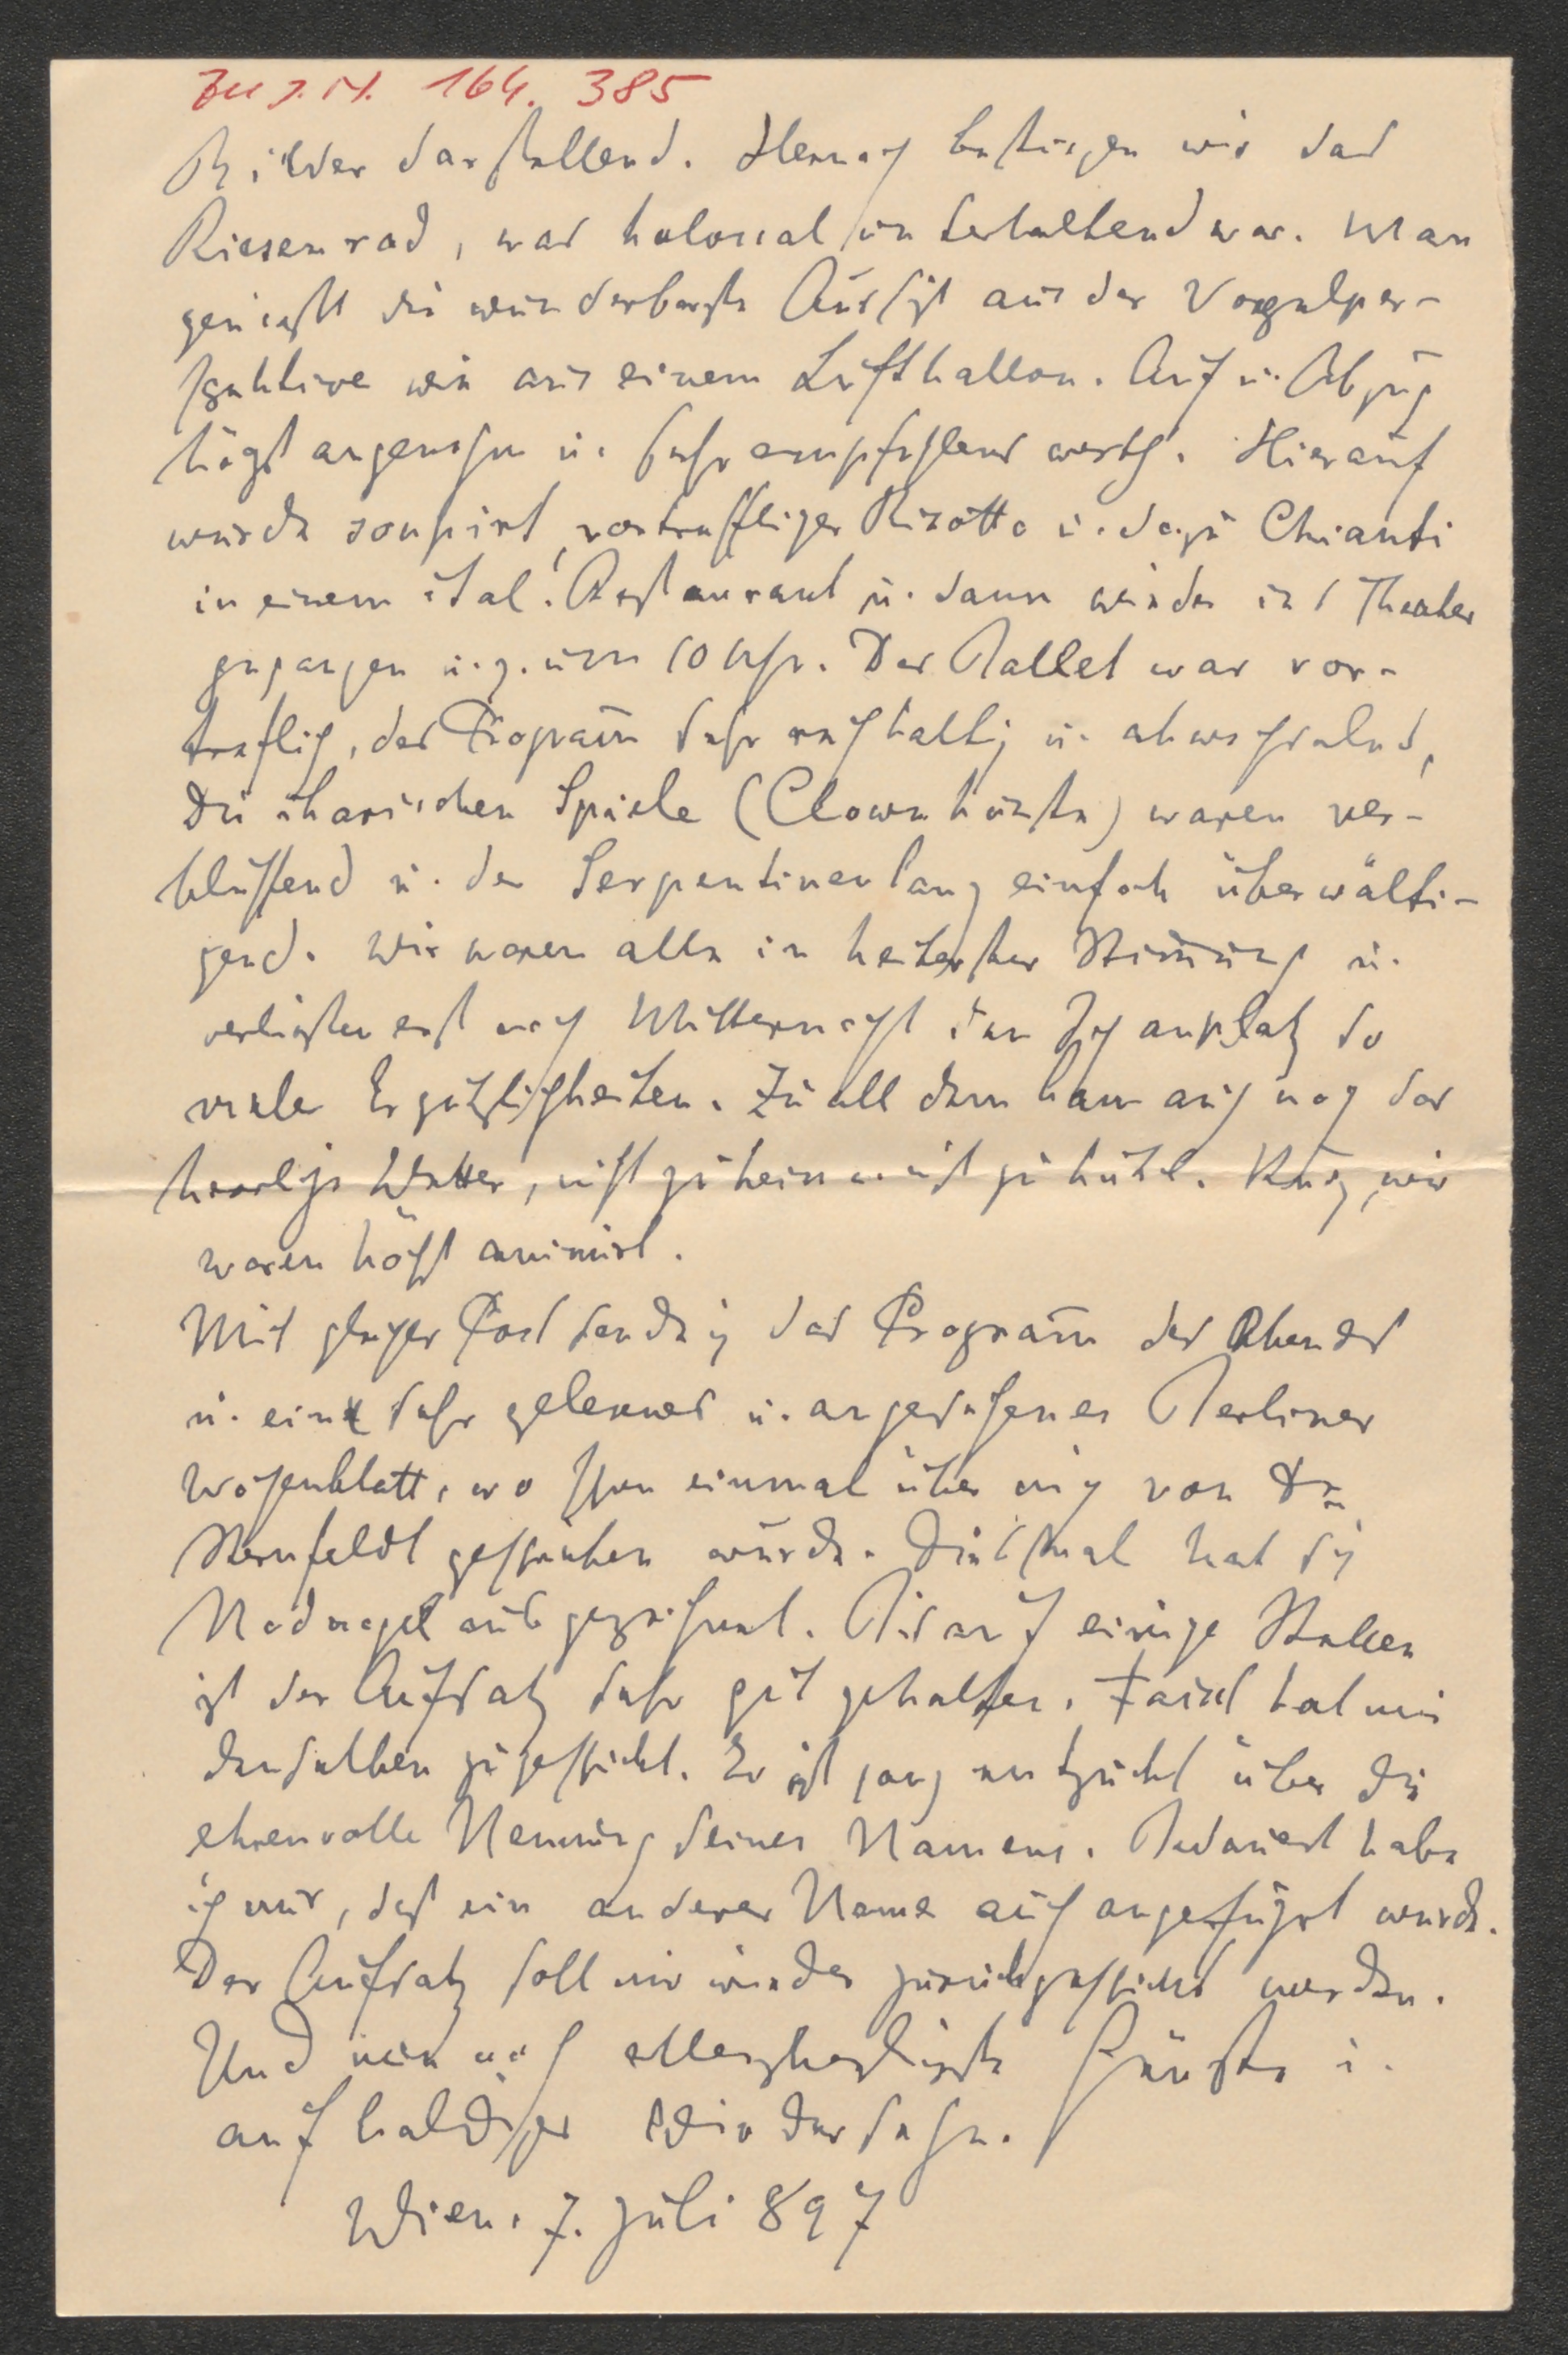 Zu I.N. 164.385
Bilder darstellend. Hernach bestiegen wir das
Riesenrad, was kolossal unterhaltend war. Man
genießt die wunderbarste Aussicht aus der Vogelper-
spektive wie aus einem Luftballon. Auf u. Abzug
höchst angenehm u. sehr empfehlenswerth. Hierauf
wurde soupirt, vortrefflicher Risotto u. dazu Chianti
in einem ital. Restaurant u. dann wieder ins Theater
gegangen u. z. um 10 Uhr. Das Ballet war vor-
trefflich, das Program̅ sehr reichhaltig u. abwechselnd,
die ikarischen Spiele (Clownkünste) waren ver-
blüffend u. der Serpentinentanz einfach überwälti-
gend. Wir waren alle in heiterster Stim̅ung u.
verließen erst nach Mitternacht den Schauplatz so
vieler Ergötzlichkeiten. Zu all dem kam auch noch das
herrliche Wetter, nicht zu heiß u. nicht zu kühl. Kurz, wir
waren höchst animirt.
Mit gleicher Post sende ich das Program̅ des Abends
u. ein sehr gelesenes u. angesehenes Berliner
Wochenblatt, wo schon einmal über mich von Dr.
Sternfeldt gesprochen wurde. Diesmal hat sich
Nodnagel ausgezeichnet. Bis auf einige Stellen
ist der Aufsatz sehr gut gehalten. Faisst hat mir
denselben zugeschickt. Er ist ganz entzückt über die
ehrenvolle Nennung seines Namens. Bedauert habe
ich nur, daß ein anderer Name auch angeführt wurde.
Der Aufsatz soll mir wieder zurückgeschickt werden.
Und nun noch allerherzlichste Grüße u.
auf baldiges Wiedersehn.
Wien. 7. Juli 897